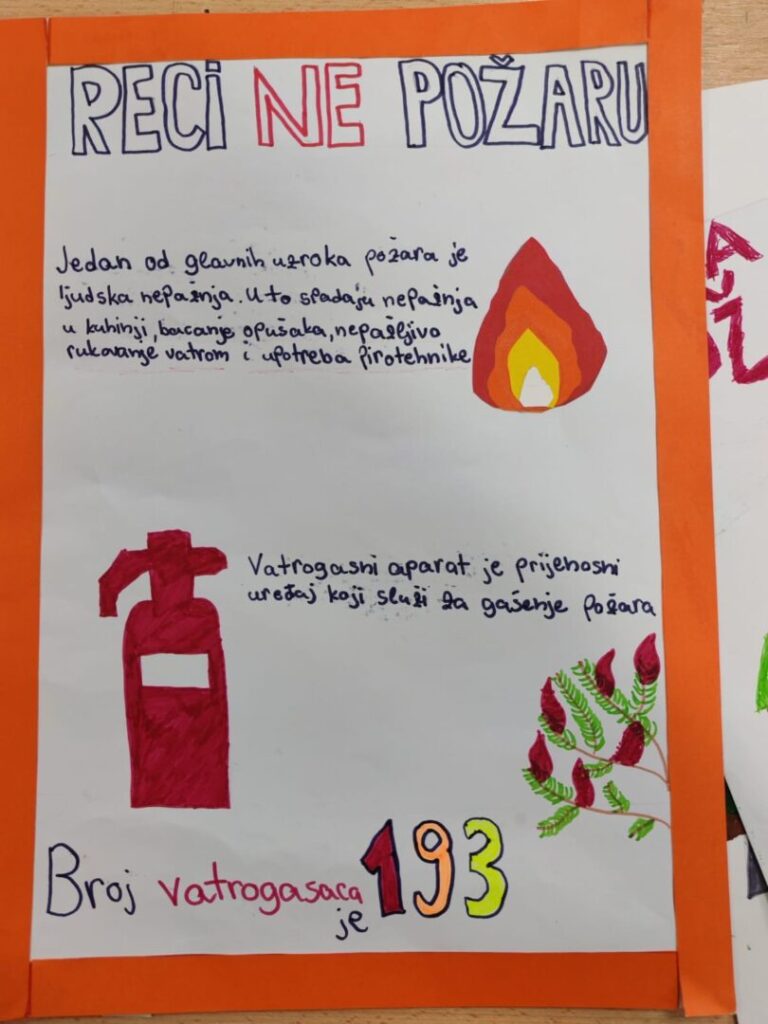 RECI NE POŽARU
Jedan od glavnih uzroka požara je
ljudska nepažnja. U to spadaju nepažnja
u kuhinji, bacanje opušaka, nepažljivo
rukovanje vatrom i upotreba pirotehnike
Vatrogasni aparat je prijenosni
uređaj koji služi za gašenje požara
Broj vatrogasaca je 193